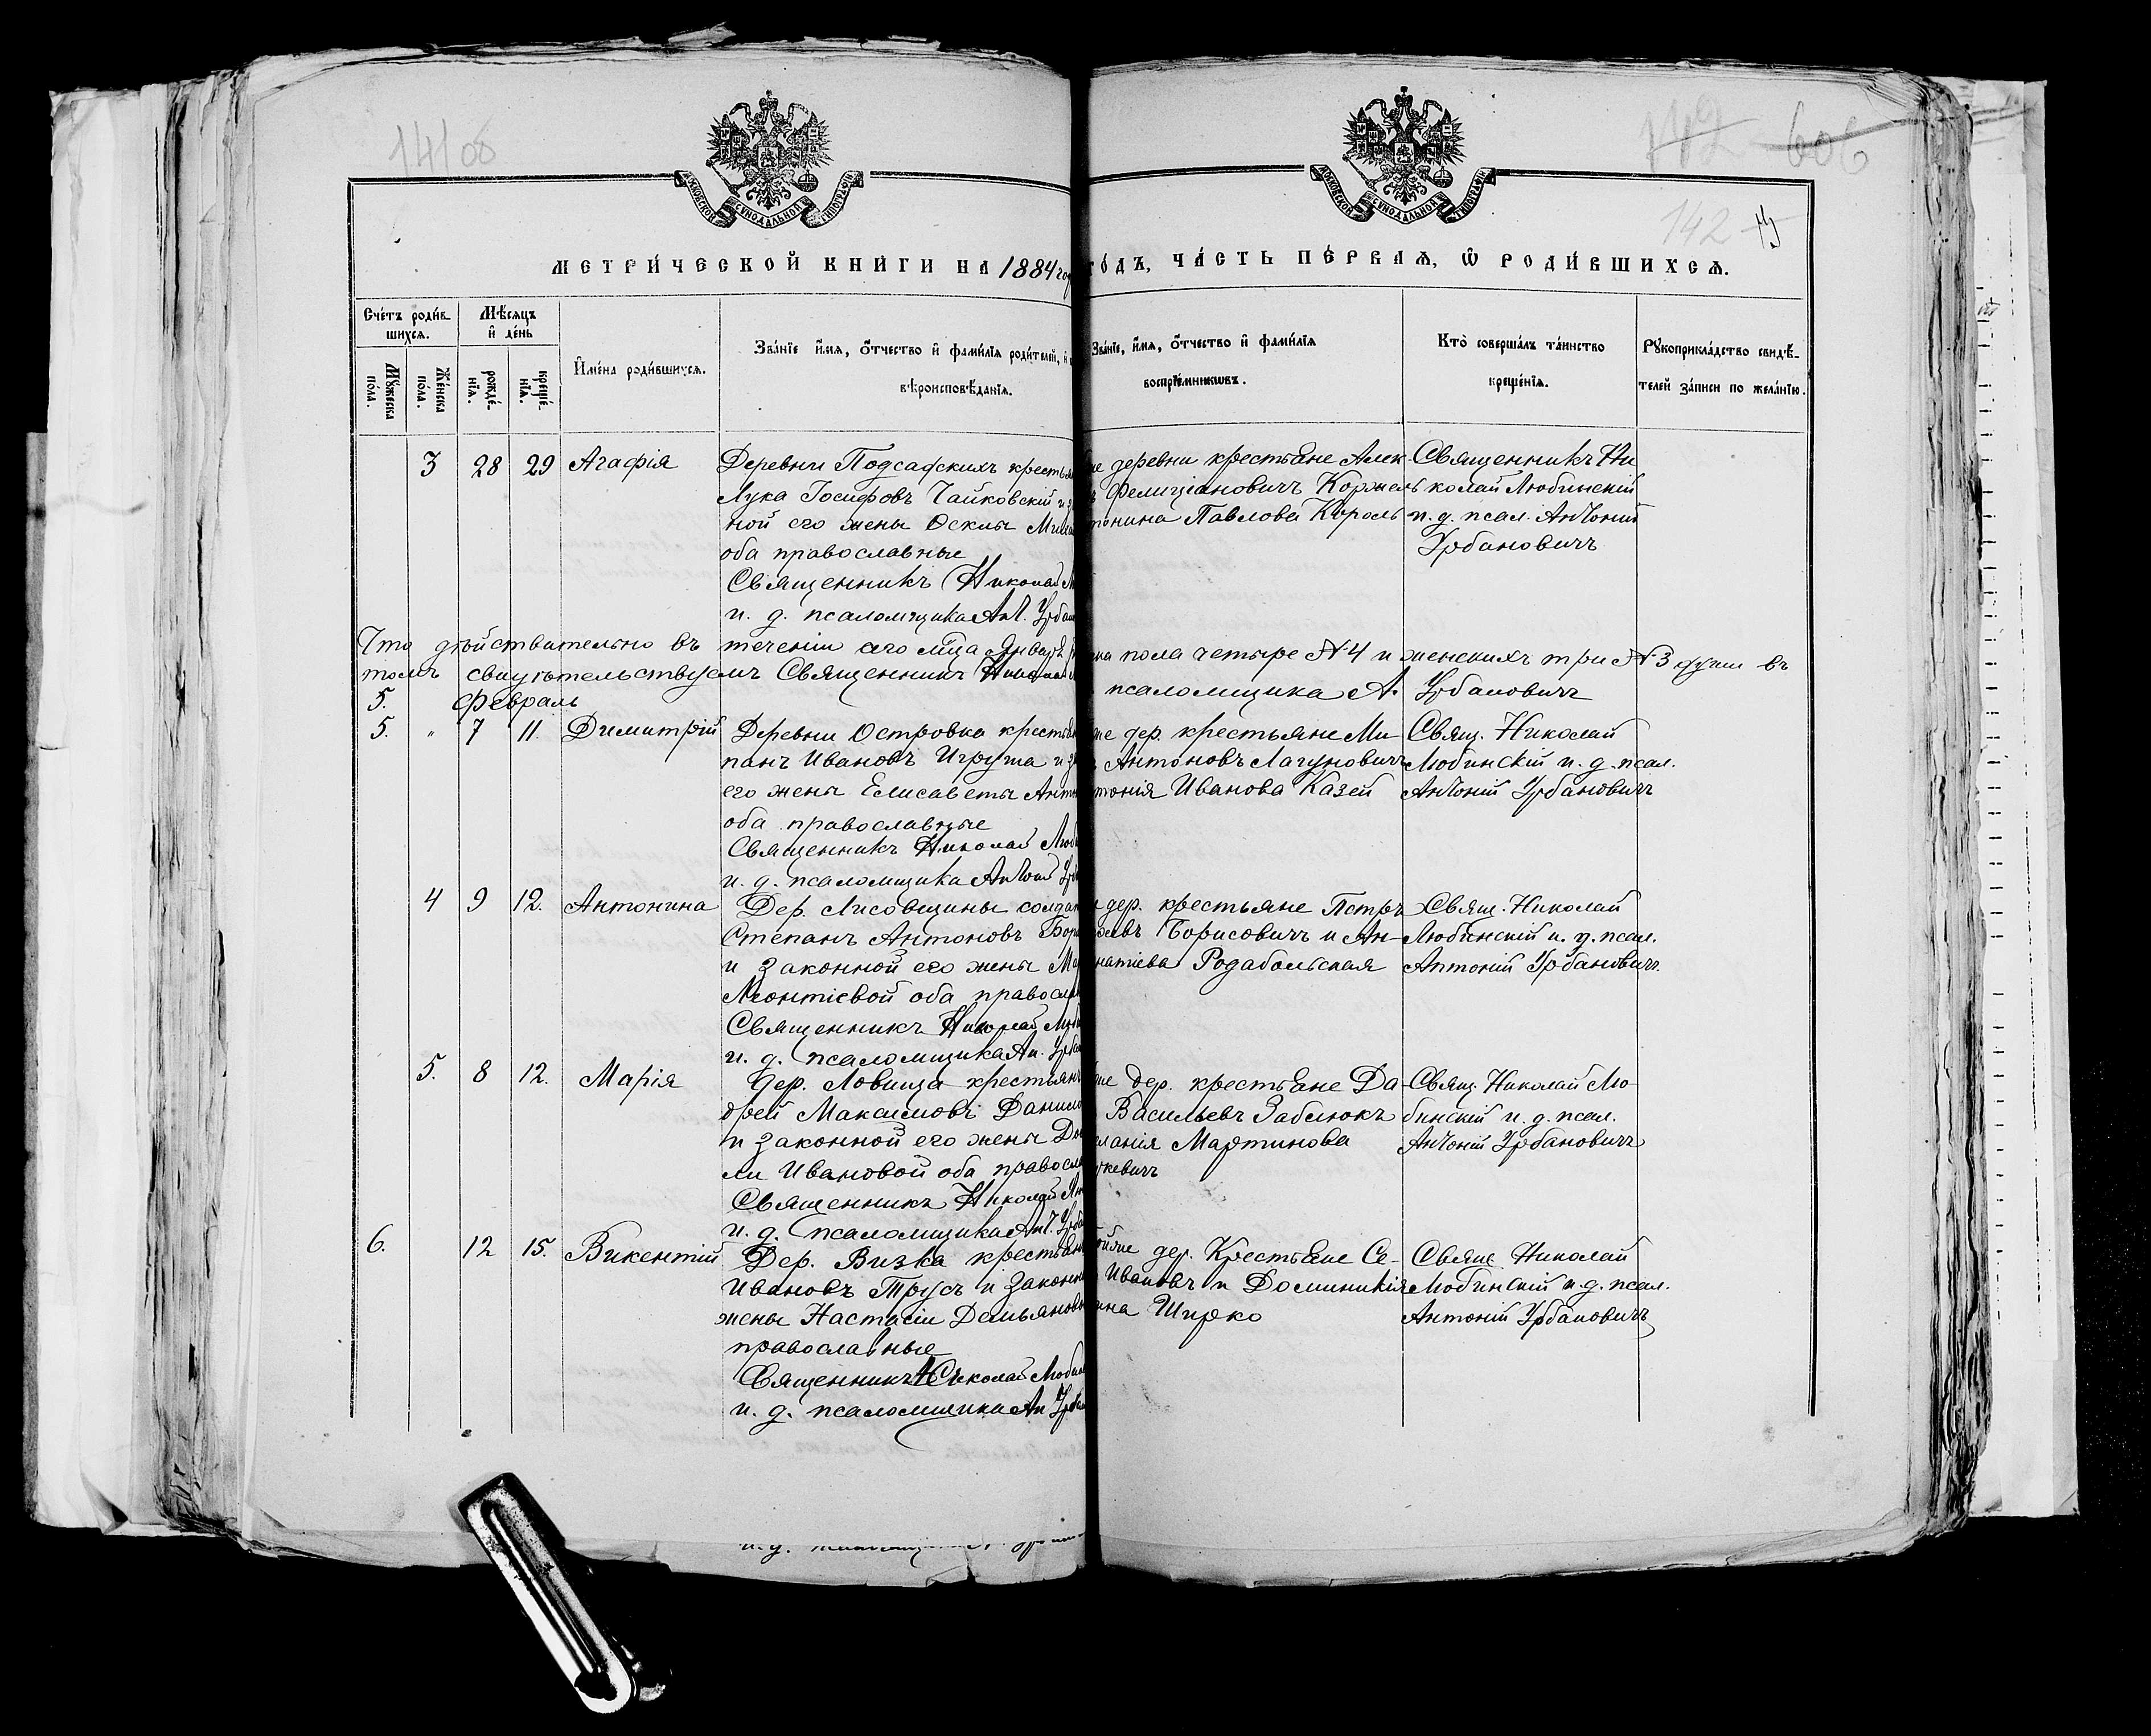 14106
142 606
142
МОСКОВСКОЙ СѴНОДАЛЬНОЙ ТИПОГРАФІИ
МОСКОВСКОЙ СѴНОДАЛЬНОЙ ТИПОГРАФІИ
МЕТРИ́ЧЕСКОЙ КНИ́ГИ НА 1884 го
ГО́ДЪ, ЧА́СТЬ ПЕ́РВАѦ, Ѽ РОДИ́ВШИХСѦ.
Сче́тъ роди́в
шихсѧ.
Мѣ́сѧцъ
и҆ де́нь
Мꙋ́жеска по́ла.
Же́нска по́ла.
рожде́нїѧ.
креще́нїѧ.
И҆мена̀ роди́вшихсѧ.
Зва́нїе и҆́мѧ, ѻ҆́тчество и҆ фами́лїѧ роди́телей, и҆
вѣроисповѣ́данїѧ.
Зва́нїе, и҆́мѧ, ѻ҆́тчество и҆ фами́лїѧ
воспрїе́мникѡвъ.
Кто̀ соверша́лъ та́инство
креще́нїѧ.
Рꙋкоприкла́дство свидѣ́-
телей за́писи по жела́нїю.
3 28 29 Агафія
Деревни Подсафскихъ крестья
Лука Іосифовъ Чайковскій и з
ной его жены Оскиы
оба православные
Священникъ Николай
и. д. псаломщика Ант. Урбан
же деревни крестьяне Алек-
Фелиціановичъ Коржель
тонина Павлова Король
Священникъ Ни
колай Любинскій
и. д. псал. Антоній
Урбановичъ
Что дѣйствительно въ теченіи сего мѣсца Январѣ
на пола четыре № 4 и женскихъ три № 3 души въ
томъ свидѣтельствуемъ Священникъ Николай
псаломщика А. Урбановичъ
5. Февраль
5. " 7 11. Димитрій
Деревни Островка крестьян
панъ Ивановъ Игруша и з
его жены Елисаветы Анто
оба православные
Священникъ Николай Люб
и. д. псаломщика Антоній Урб
же дер. крестьяне Ми-
Антоновъ Лагуновичъ
тонія Иванова Казей
Свящ. Николай
Любинскій и. д. псал.
Антоній Урбановичъ
4 9 12. Антонина
Дер. Лисовщины солдат
Степанъ Антоновъ Бори
и законной его жены Ма
Леонтіевой оба правосл
Священникъ Николай Люби
и. д. псаломщика Ан. Урбан
дер. крестьяне Петръ
евъ Борисовичъ и Ан-
натіева Родабольская
Свящ. Николай
Любинскій и. д. псал.
Антоній Урбановичъ.
5. 8 12. Марія
Дер. Ловища крестьян
дрей Максимовъ Данило
и законной его жены До
ли Ивановой оба правосла
Священникъ Николай Лю
и. д. псаломщика Ант. Урба
же дер. крестьяне Да-
Васильевъ Заблюкъ
ланія Мартинова
кевичъ
Свящ. Николай Лю-
бинскій и. д. псал.
Антоній Урбановичъ
6. 12 15. Викентій
Дер. Визка крестьян
Ивановъ Трусъ и законн
жены Настасіи Демьяновы
православные
Священникъ Николай Любин
и. д. псаломщика Ан Урбан
тойже дер. Крестьяне Се-
Ивановъ и Доминикія
ина Ширко
Свящ. Николай
Любинскій и. д. псал.
Антоній Урбановичъ